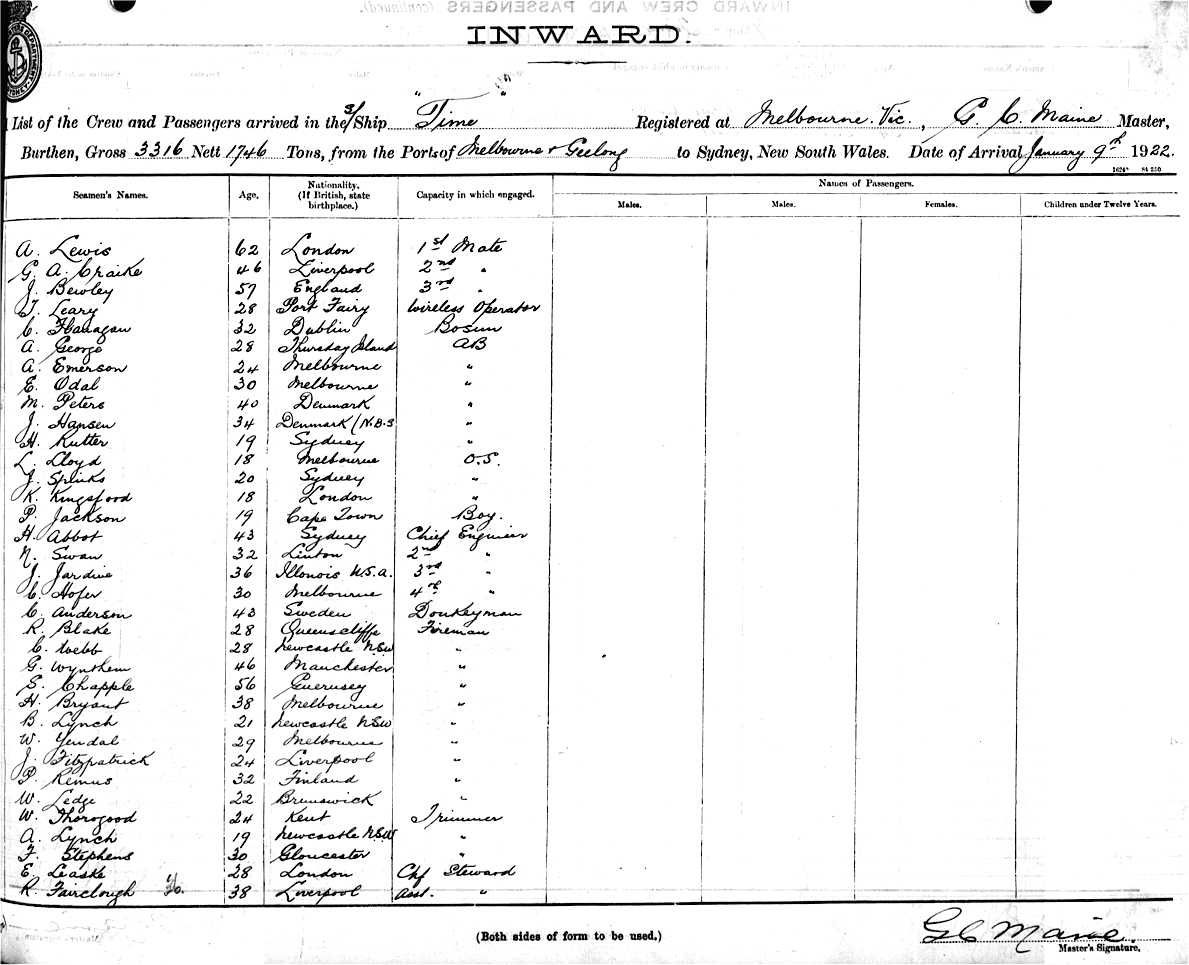 INWARD.
List of the Crew and Passengers arrived in the S/Ship "Time" Registered at Melbourne. Vic., G. C. Maine Master,
Burthen, Gross 3316 Nett 1746 Tons, from the Ports of Melbourne & Geelong to Sydney, New South Wales. Date of Arrival January 9th 1922.
Seamen's Names. Age. Nationality. (If British, state birthplace.) Capacity in which engaged. Names of Passengers.
Males. Males. Females. Children under Twelve Years.
A. Lewis 62 London 1st Mate
G. A. Craike 46 Liverpool 2nd "
J. Bewley 57 England 3rd "
T. Leary 28 Port Fairy Wireless Operator
C. Flanagan 32 Dublin Bosun
A. George 28 Thursday Island AB
A. Emerson 24 Melbourne "
E. Odal 30 Melbourne "
M. Peters 40 Denmark "
J. Hansen 34 Denmark (N.B.S "
H. Rutter 19 Sydney "
L. Lloyd 18 Melbourne O.S.
J. Spinks 20 Sydney "
K. Kingsford 18 London "
P. Jackson 19 Cape Town Boy.
H. Abbot 43 Sydney Chief Engineer
N. Swan 32 Linton 2nd "
J. Jardine 36 Illonois U.S.A. 3rd "
C. Hofer 30 Melbourne 4th "
C. Anderson 43 Sweden Donkeyman
R. Blake 28 Queenscliffe Fireman
C. Webb 28 Newcastle NSW "
G. Wynthem 46 Manchester "
S. Chapple 56 Guernsey "
H. Bryant 38 Melbourne "
B. Lynch 21 Newcastle NSW "
W. Yendal 29 Melbourne "
J. Fitzpatrick 24 Liverpool "
P. Remus 32 Finland "
W. Ledge 22 Brunswick "
W. Thorogood 24 Kent Trimmer
A. Lynch 19 Newcastle NSW "
F. Stephens 30 Gloucester "
E. Leaske 28 London Chf Steward
R. Fairclough 38 Liverpool Asst. "
(Both sides of form to be used.)
G C Maine
Master's Signature.